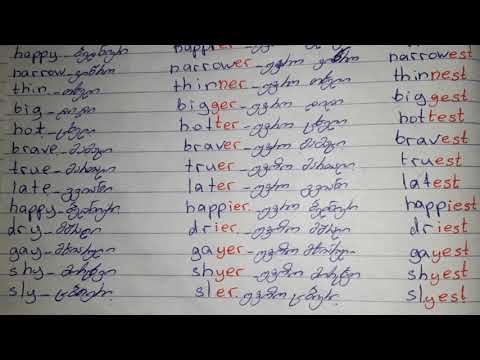 happy - ბედნიერი happier
narrow - ვიწრო narrower - უფრო ვიწრო narrowest
thin - თხელი thinner - უფრო თხელი thinnest
big - დიდი bigger - უფრო დიდი biggest
hot - ცხელი hotter - უფრო ცხელი hottest
brave - მამაცი braver - უფრო მამაცი bravest
true - მართალი truer - უფრო მართალი truest
late - გვიანი later - უფრო გვიანი latest
happy - ბედნიერი happier. უფრო ბედნიერი happiest
dry - მშრალი drier - უფრო მშრალი driest
gay - მხიარული gayer - უფრო მხიარული gayest
shy - მორცხვი shyer - უფრო მორცხვი shyest
sly - ცბიერი sler. უფრო ცბიერი. slyest